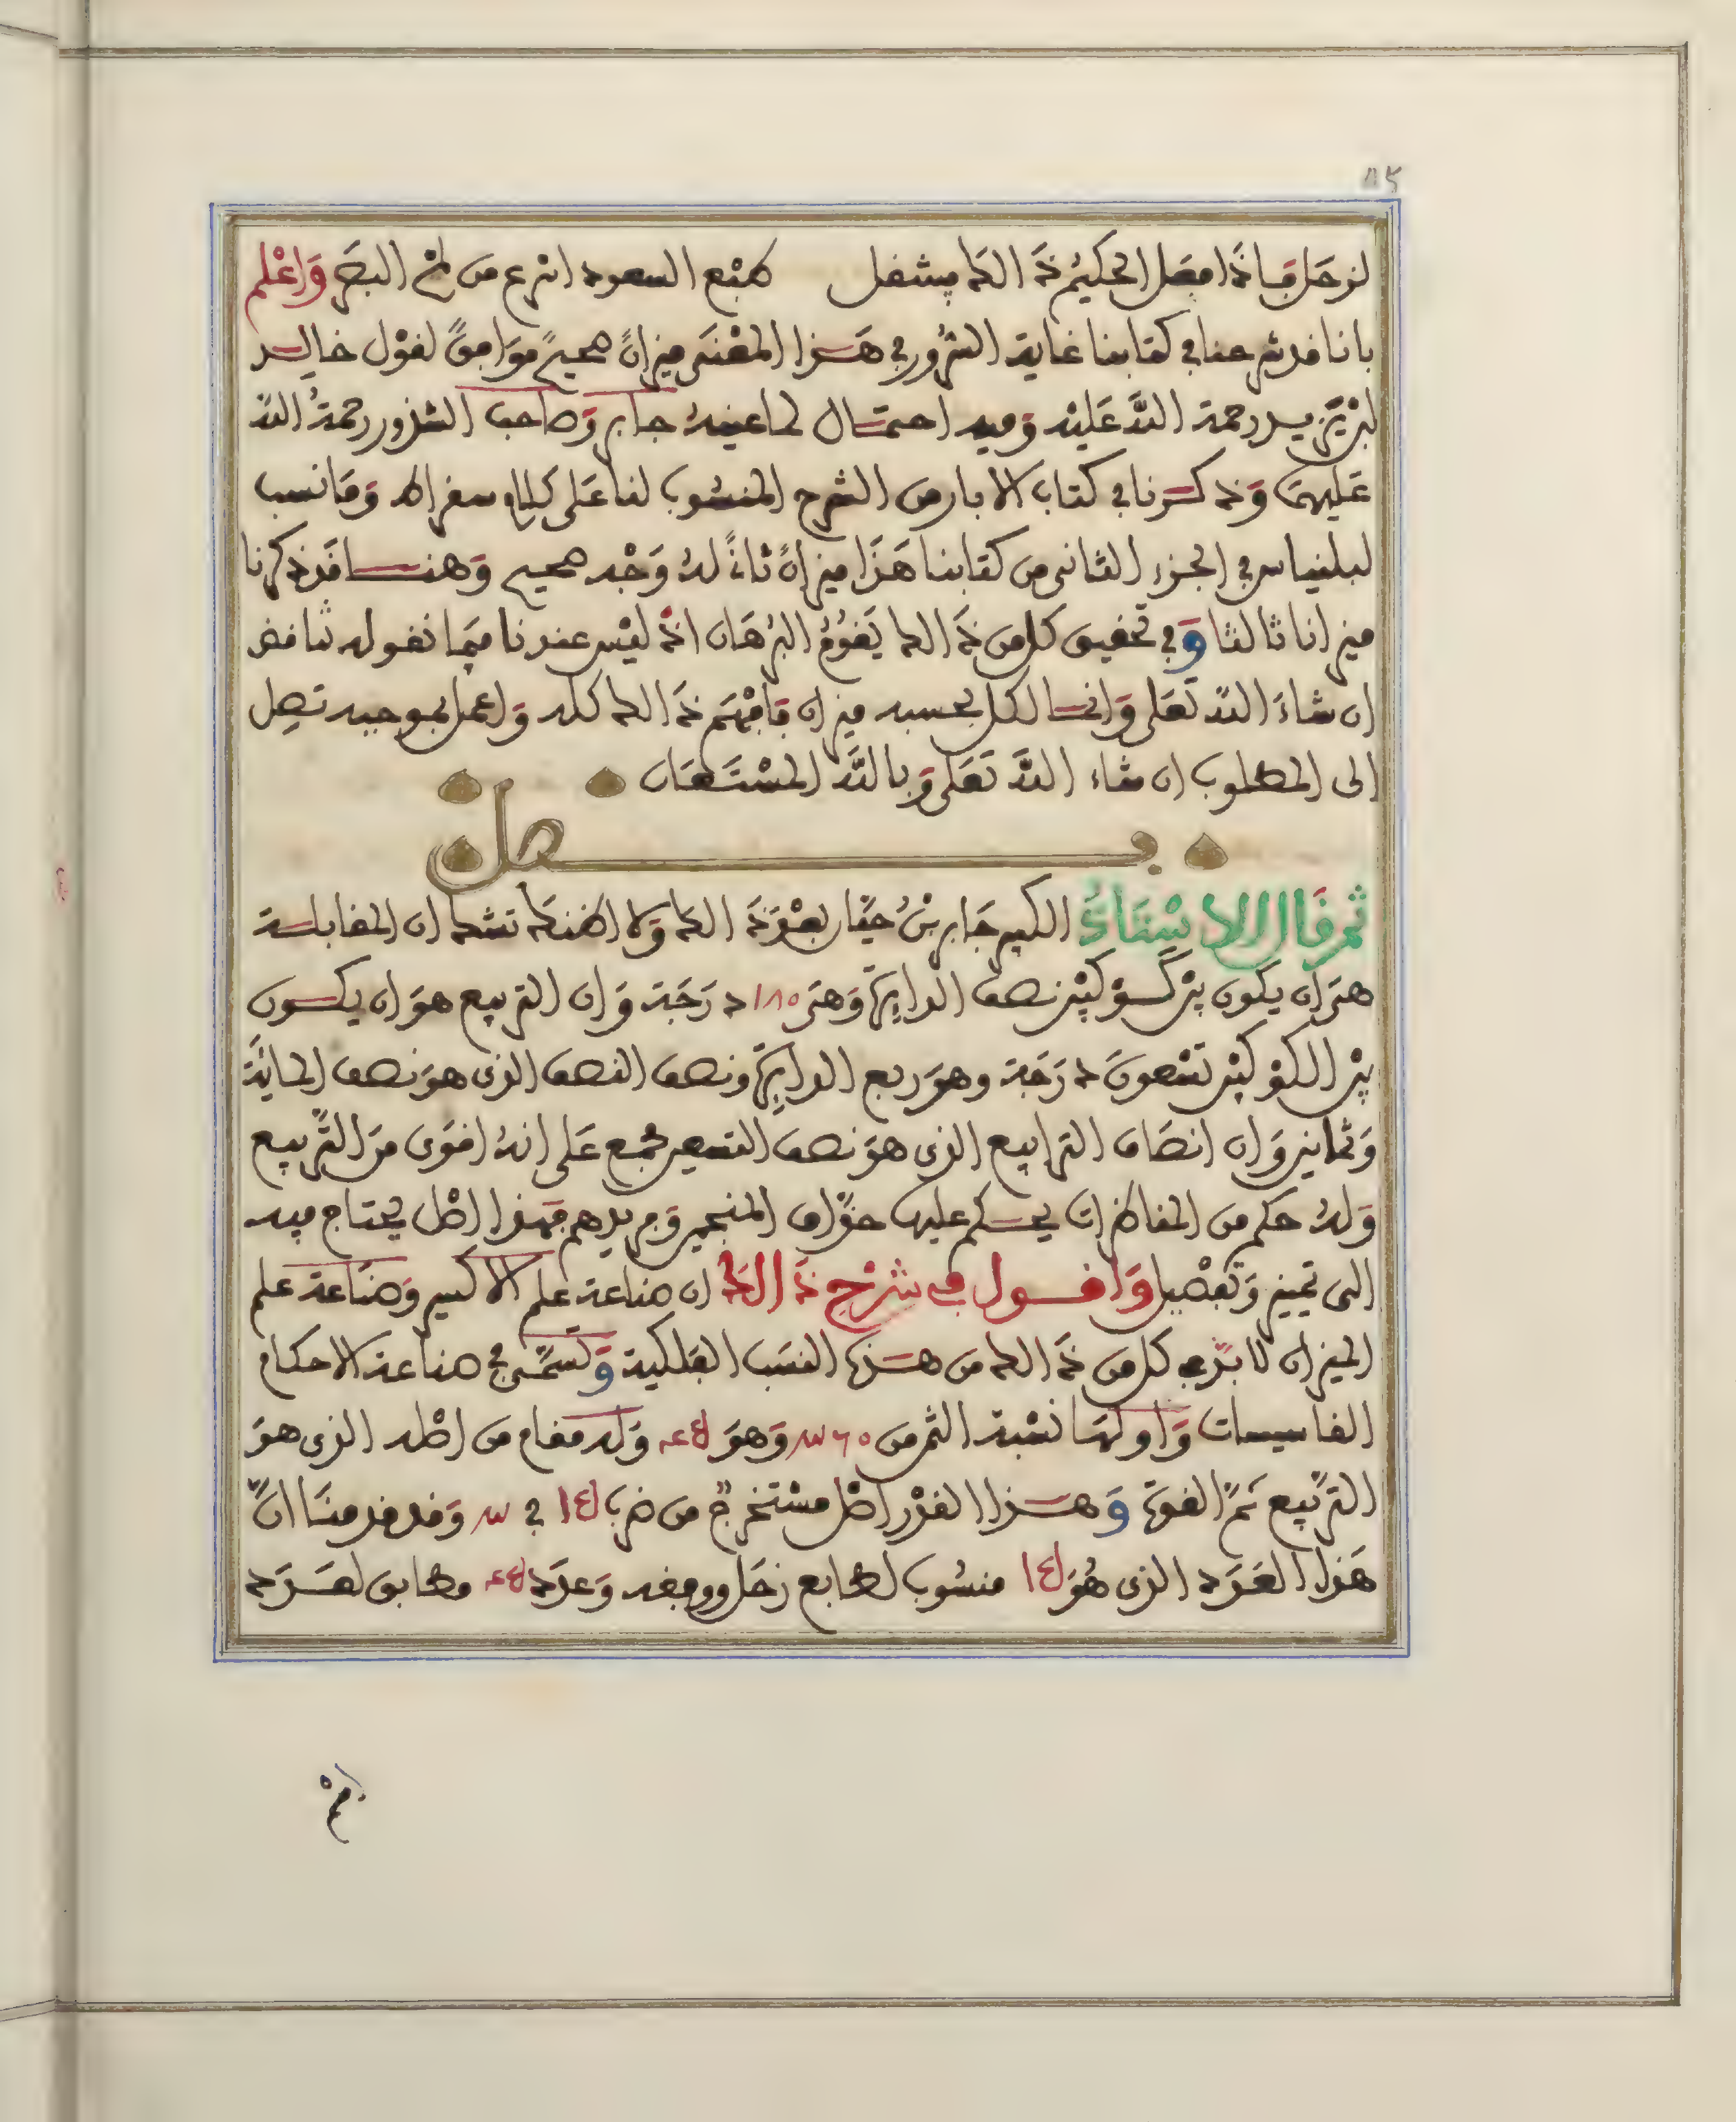 ٨٢
لزحل فاذا فعل الحكيم ذالك فينتقل كبع السعود اسرع من لمح البصر واعلم
بانا قد شرحنا في كتابنا غاية السرور في هذا المعنى ميزان صحيح موافق لقول خالد
ابن يزيد رحمة الله عليه وفيه احتمال لما عينه جابر وصاحب الشذور رحمة الله
عليهما وذكرنا في كتاب الابار من الشرح المنسوب لنا على كلام سقراط وما نسب
لبلنياس في الجزء الثاني من كتابنا هذا ميزان ثان له وجه صحيح وهنا قد ذكرنا
ميزانا ثالثا وفي تحقيق كل من ذالك يقوم البرهان اذ ليس عندنا فيما نقوله تناقض
ان شاء الله تعلى وانما لكل بحسبه ميزان فافهم ذالك كله واعمل بموجبه تصل
الى المطلوب ان شاء الله تعلى وبالله المستعان
فصل
ثم قال الاستاذ الكبير جابر بن حيان بعد ذالك ولا اظنك تشك ان المقابلة
هى ان يكون بين كوكبين نصف الدايرة وهى ١٨٠ درجة وان التربيع هو ان يكون
بين الكوكبين تسعون درجة وهو ربع الدايرة ونصف النصف الذى هو نصف المائة
وثمانين وان انصاف الترابيع الذى هو نصف التسعين مجمع على انه اقوى من التربيع
وله حكم من المفاظرات يحكم عليها حذاق المنجمين ومريدهم فهذا اصل يحتاج فيه
الى تمييز وتفصيل واقول في شرح ذالك ان صناعة علم الاكسير وصناعة علم
الميزان لا بد في كل من ذالك من هذه النسب الفلكية وتسمى في صناعة الاحكام
الفاسيسات واولها نسبة الثمن من ٣٦٠ وهو ٤٥ وله مقام من اصله الذى هو
التربيع ثم القوة وهذا القدر اصل مستخرج من ضرب ١٥ في ٣ وقد قدمنا ان
هذا العدد الذى هو ١٥ منسوب لطابع زحل ووفقه وعدد ٤٥ مطابق لعدد